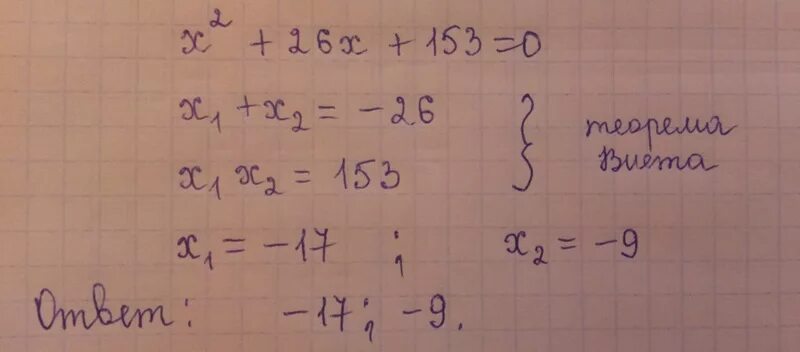 x² + 26x + 153 = 0
x₁ + x₂ = -26
x₁ x₂ = 153
} теорема
Виета
x₁ = -17 ; x₂ = -9
Ответ: -17; -9.